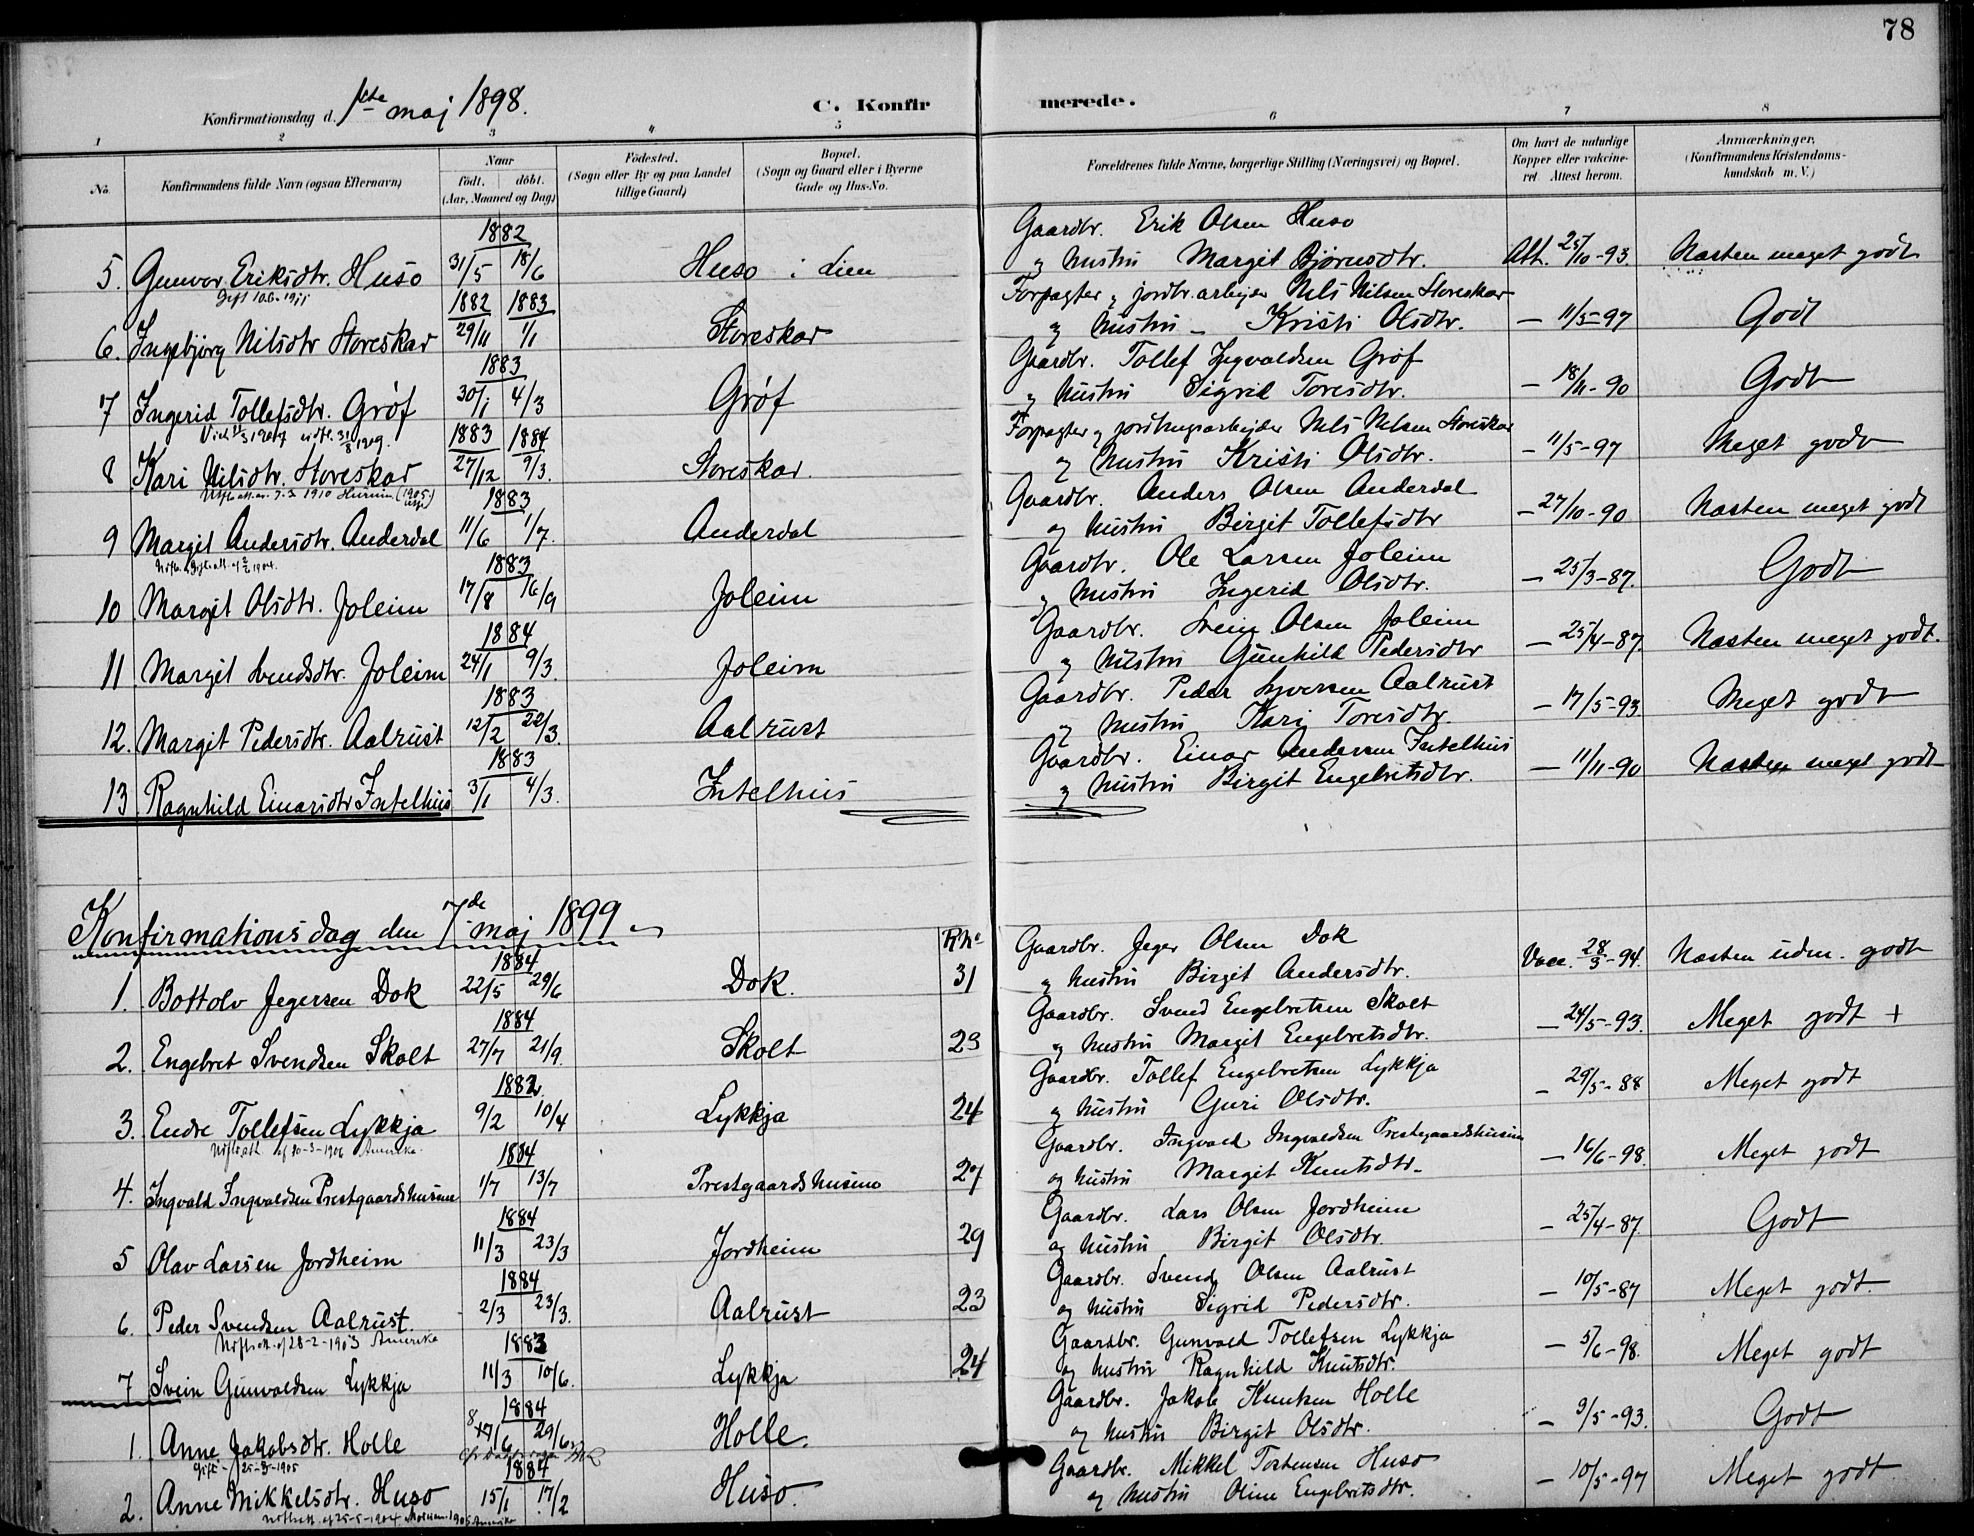 78
Konfirmationsdag d. 1ste maj 1898.
C. Konfir merede.
1 2 3 4 5 6 7 8
No. Konfirmandens fulde Navn (ogsaa Efternavn) Naar født. døbt. (Aar, Maaned og Dag) Fødested. (Sogn eller By og paa Landet tillige Gaard) Bopæl. (Sogn og Gaard eller i Byerne Gade og Hus-No. Forældrenes fulde Navne, borgerlige Stilling (Næringsvei) og Bopæl. Om havt de naturlige Kopper eller vakcineret. Attest herom. Anmærkninger, (Konfirmandens Kristendomskundskab m. V.)
1882 Gaardbr. Erik Olsen Huso
5. Gunvor Eriksdtr. Huso 31/5 18/6 Huso i Lien og hustru Margit Bjørnsdtr. Att. 25/10-93. Næsten meget godt
Gift 1911
1882 1883 Forpagter og jordbr.arbejder Nils Nilsen Storeskar
6. Ingebjørg Nilsdtr Storeskar 29/11 1/1 Storeskar og hustru - Kristi Olsdtr. — 11/5-97 Godt
1883 Gaardbr. Tollef Ingvaldsen Grøf
7 Ingerid Tollefsdtr. Grøf 30/1 4/3 Grøf og hustru Sigrid Toresdtr. — 18/11-90 Godt
31/8 1909.
1883 1884 Forpagter og jordbrugsarbejder Nils Nilsen Storeskar
8 Kari Nilsdtr. Storeskar 27/12 9/3. Storeskar. og hustru Kristi Olsdtr. — 11/5-97 Meget godt
1910 Hurum (1905)
1883 Gaardbr. Anders Olsen Anderdal
9 Margit Andersdtr. Anderdal 11/6 1/7. Anderdal og hustru Birgit Tollefsdtr — 27/10-90 Næsten meget godt
1904.
1883 Gaardbr. Ole Larsen Joleim
10 Margit Olsdtr. Joleim 17/8 16/9 Joleim og hustru Ingerid Olsdtr. — 25/3-87. Godt
1884 Gaardbr. Svein Olsen Joleim
11 Margit Svendsdtr. Joleim 24/1 9/3. Joleim og hustru Gunhild Pedersdtr — 25/4-87. Næsten meget godt.
1883 Gaardbr. Peder Syversen Aalrust
12. Margit Pedersdtr. Aalrust 12/2 22/3. Aalrust og hustru Kari Toresdtr. — 17/5-93. Meget godt
1883 Gaardbr. Einar Andersen Intelhus
13 Ragnhild Einarsdtr Intelhus 3/1 4/3. Intelhus og hustru Birgit Engebretsdtr. — 11/11-90 Næsten meget godt
Konfirmationsdag den 7de maj 1899
1884 R.No Gaardbr. Jeger Olsen Dok
1. Bottolv Jegersen Dok 22/5 29/6 Dok. 31 og hustru Birgit Andersdtr. Vacc. 28/3-94. Næsten udm. godt
1884 Gaardbr. Svend Engebretsen Skolt
2. Engebret Svendsen Skolt 27/7 21/9. Skolt 23 og hustru Margit Engebretsdtr. — 24/5-93. Meget godt +
1882. Gaardbr. Tollef Engebretsen Lykkja
3. Endre Tollefsen Lykkja 9/2 10/4 Lykkja 24 og hustru Guri Olsdtr. — 29/5-88 Meget godt
1906 Amerika.
1884 Gaardbr. Ingvald Ingvaldsen Prestgaardshusene
4. Ingvald Ingvaldsen Prestgaardshusene 1/7 13/7 Prestgaardshusene 27 og hustru Margit Knutsdtr. — 16/6-98. Meget godt
1884 Gaardbr. Lars Olsen Jordheim
5 Olav Larsen Jordheim 11/3 23/3 Jordheim 29 og hustru Birgit Olsdtr. — 25/4-87. Godt
1884 Gaardbr. Svend Olsen Aalrust
6. Peder Svendsen Aalrust. 2/3 23/3. Aalrust 23 og hustru Sigrid Pedersdtr. — 10/5-87 Meget godt.
28-2-1903 Amerika
1883 Gaardbr. Gunvald Tollefsen Lykkja
7 Svein Gunvaldsen Lykkja 11/3 10/6. Lykkja 24 og hustru Ragnhild Knutsdtr. — 5/6-98. Meget godt
1884 Gaardbr. Jakob Knutsen Holle
1. Anne Jakobsdtr. Holle 8/6 29/6 Holle. og hustru Birgit Olsdtr. — 9/5-93. Godt
Gift 1905
1884 Gaardbr. Mikkel Torstensen Huso
2. Anne Mikkelsdtr. Huso 15/1 17/2 Huso. og hustru Oline Engebretsdtr. — 10/5-97 Meget godt
25-5-1904 1905 Amerika